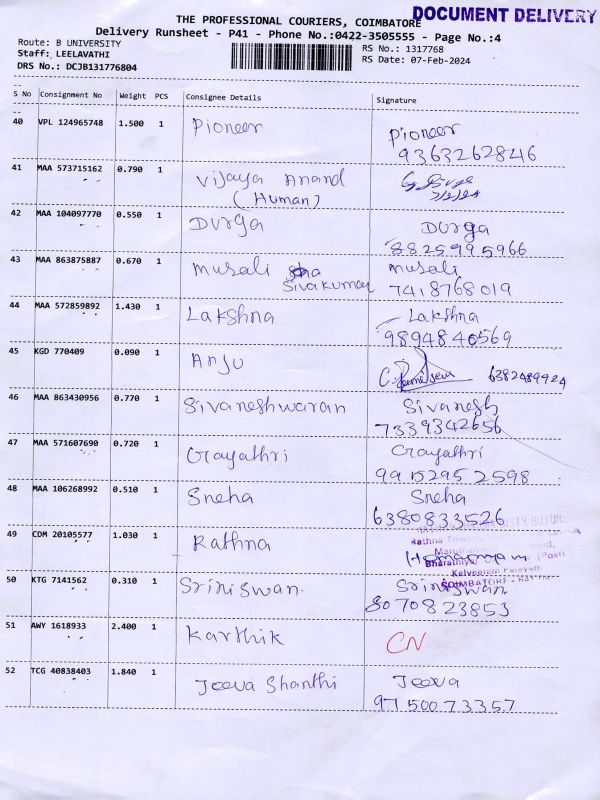 DOCUMENT DELIVERY
THE PROFESSIONAL COURIERS, COIMBATORE
Delivery Runsheet - P41 - Phone No.:0422-3505555 - Page No.:4
Route: B UNIVERSITY
Staff: LEELAVATHI
DRS No.: DCJB131776804
RS No.: 1317768
RS Date: 07-Feb-2024
S No Consignment No Weight PCS Consignee Details Signature
40 VPL 124965748 1.500 1 Pioneer Pioneer
9363262846
41 MAA 573715162 0.790 1 Vijaya Anand
(Human)
42 MAA 104097770 0.550 1 Durga Durga
8825995966
43 MAA 863875887 0.670 1 Musali Sivakumar Musali
7418768019
44 MAA 572859892 1.430 1 Lakshna Lakshna
9894840569
45 KGD 770409 0.090 1 Anju 6382489924
46 MAA 863430956 0.770 1 Sivaneshwaran Sivanesh
7339342656
47 MAA 571607690 0.720 1 Gayathri Gayathri
9915295 2598
48 MAA 106268992 0.510 1 Sneha Sneha
6380833526
49 CDM 20105577 1.030 1 Rathna
50 KTG 7141562 0.310 1 Sriniswan Sriniswan
8070823853
51 AWY 1618933 2.400 1 Karthik CN
52 TCG 40838403 1.840 1 Jeeva Shanthi Jeeva
9715007 3357